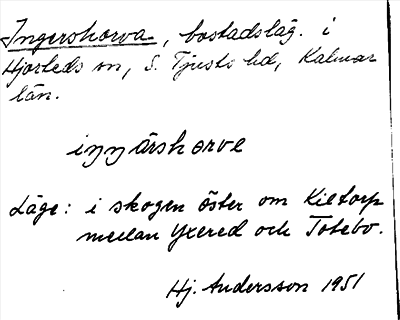 Ingershorva, bostadsläg. i
Hjorteds sn, S. Tjusts hd, Kalmar
län.
iŋŋärshorve
Läge: i skogen öster om Kiltorp
mellan Yxered och Totebo.
Hj. Andersson 1951